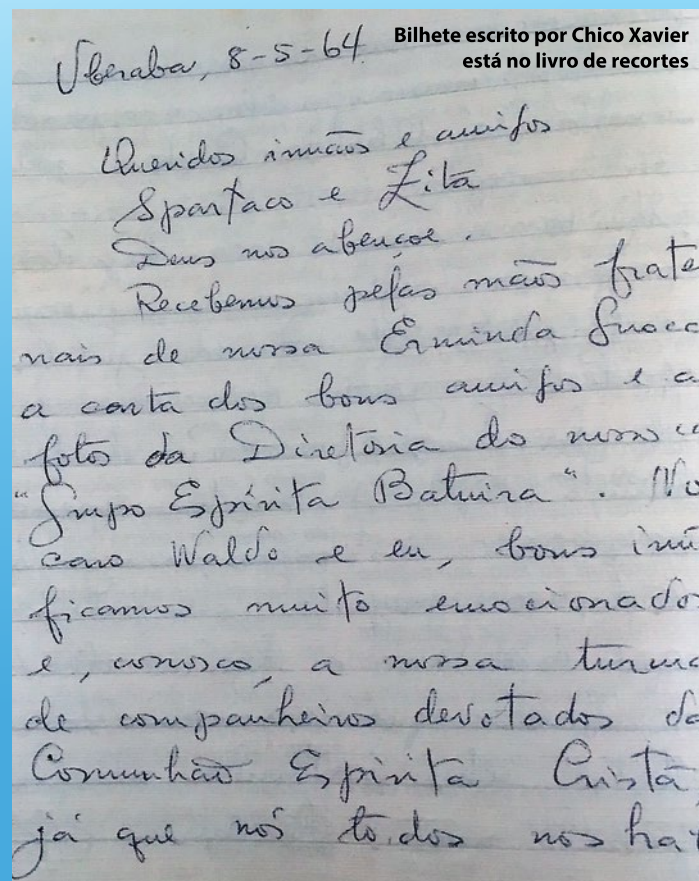 Bilhete escrito por Chico Xavier
está no livro de recortes
Uberaba, 8-5-64
Queridos irmãos e amigos
Spartaco e Zita
Deus nos abençoe.
Recebemos pelas mãos frate
nais de nossa Erminda
a carta dos bons amigos e a
fotos da Diretoria do nosso c
"Grupo Espírita Batuira". No
caro Waldo e eu, bons irm
ficamos muito emocionados
e, conosco, a nossa turma
de companheiros devotados da
Comunhão Espírita Cristã
já que nós todos nos ha